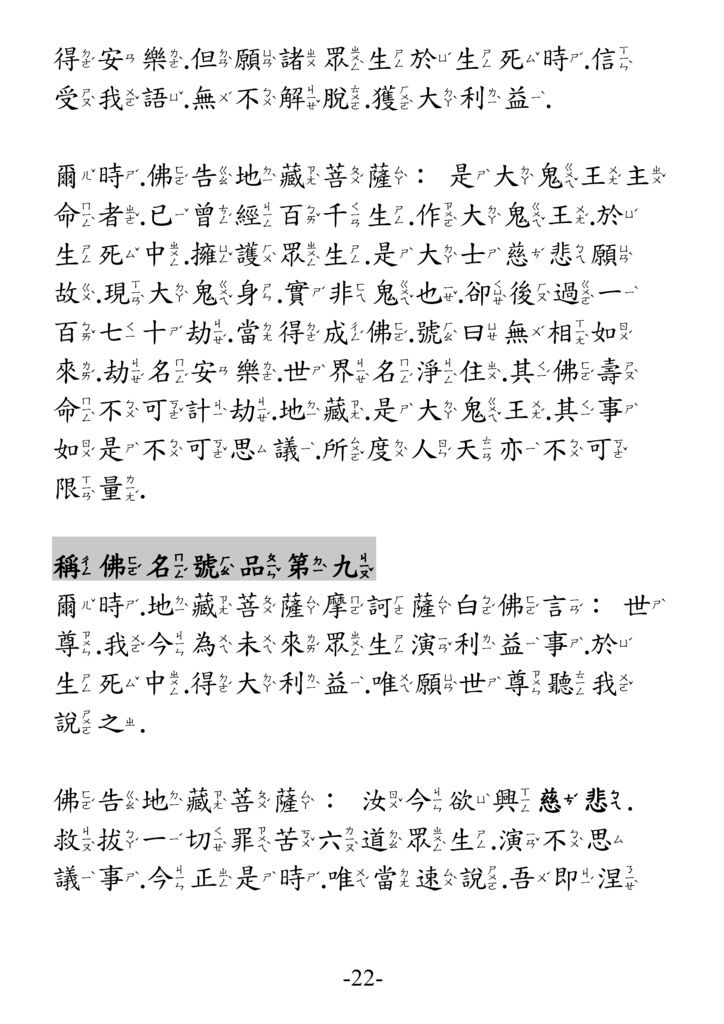 得安樂.但願諸眾生於生死時.信
受我語.無不解脫.獲大利益.
爾時.佛告地藏菩薩： 是大鬼王主
命者.已曾經百千生.作大鬼王.於
生死中.擁護眾生.是大士慈悲願
故.現大鬼身.實非鬼也.卻後過一
百七十劫.當得成佛.號曰無相如
來.劫名安樂.世界名淨住.其佛壽
命不可計劫.地藏.是大鬼王.其事
如是不可思議.所度人天亦不可
限量.
稱佛名號品第九
爾時.地藏菩薩摩訶薩白佛言： 世
尊.我今為未來眾生演利益事.於
生死中.得大利益.唯願世尊聽我
說之.
佛告地藏菩薩： 汝今欲興慈悲.
救拔一切罪苦六道眾生.演不思
議事.今正是時.唯當速說.吾即涅
-22-